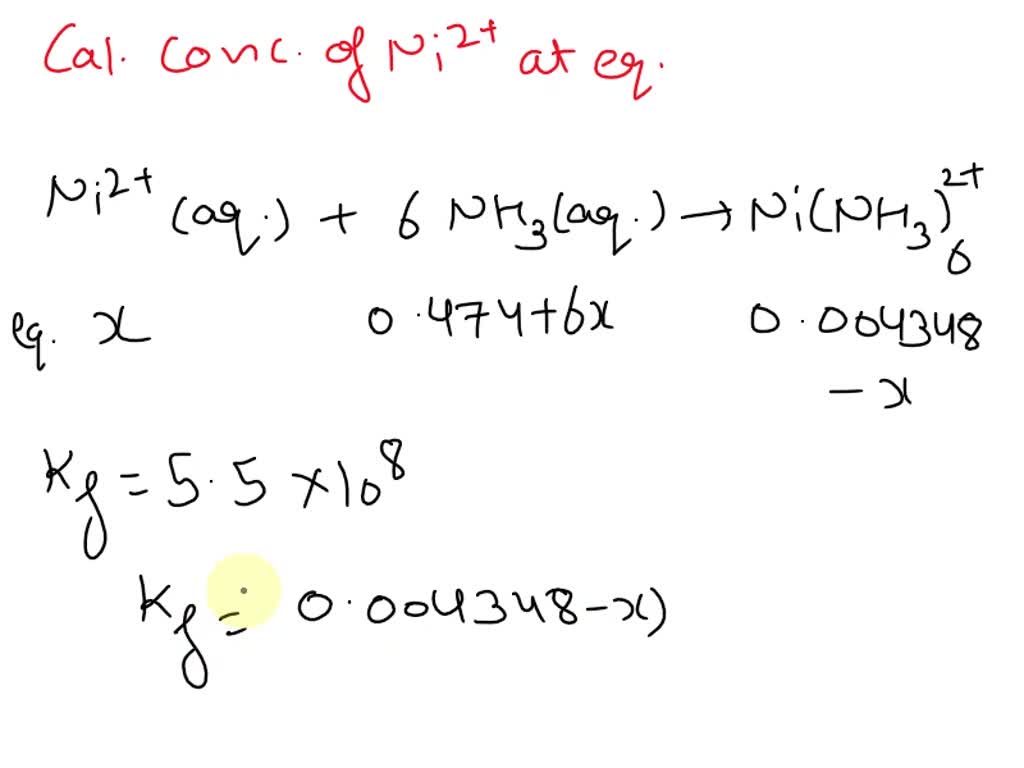 Cal. Conc. of Ni²⁺ at eq.
Ni²⁺ (aq.) + 6 NH₃(aq.) → Ni(NH₃)₆²⁺
eq. x 0.474+6x 0.004348
- x
Kf = 5.5 × 10⁸
Kf = 0.004348-x)